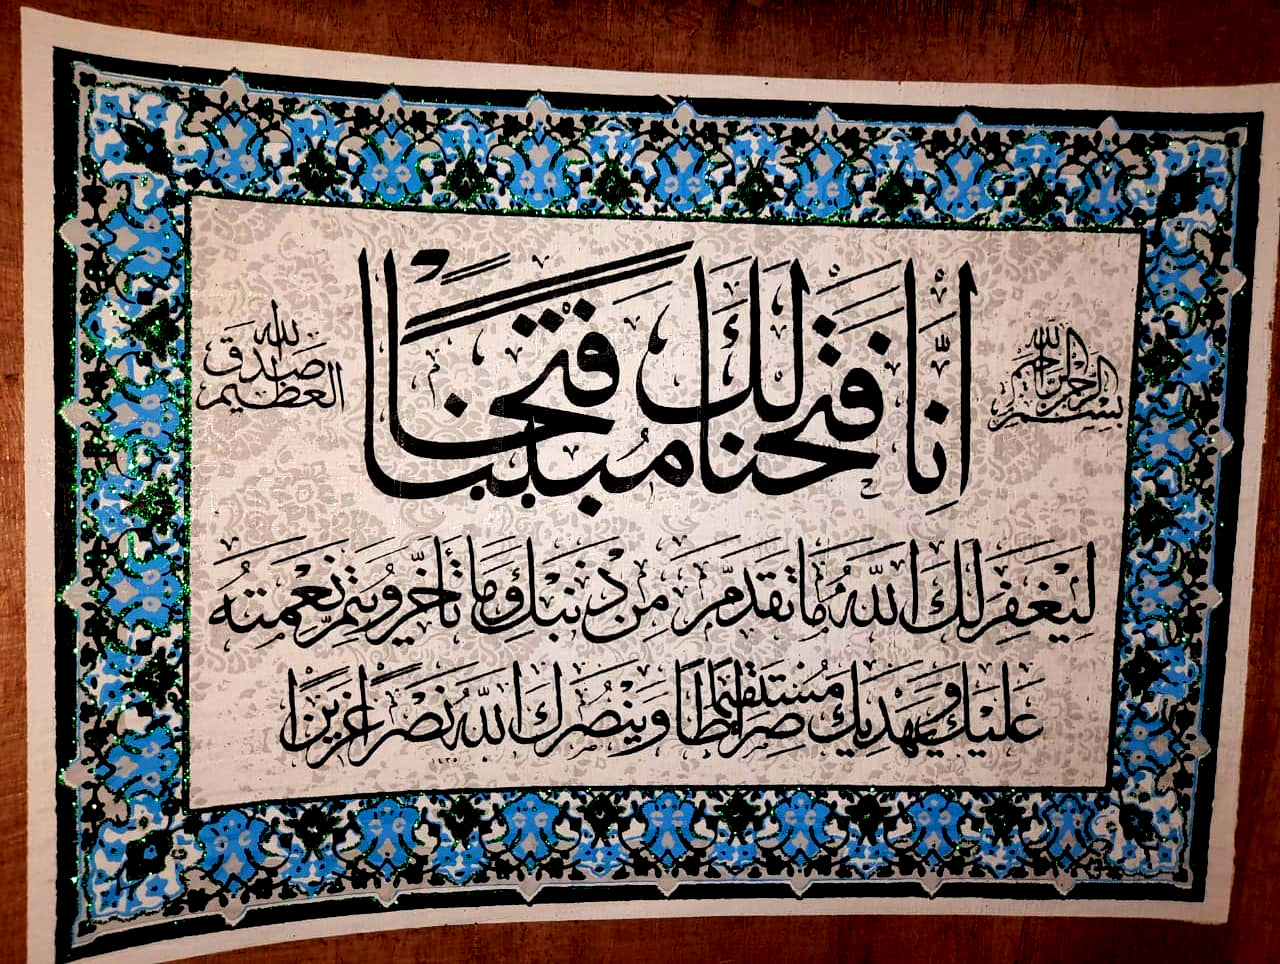 بسم الله الرحمن الرحيم
إِنَّا فَتَحْنَا لَكَ فَتْحًا مُبِينًا
صدق الله العظيم
لِيَغْفِرَ لَكَ اللَّهُ مَا تَقَدَّمَ مِنْ ذَنْبِكَ وَمَا تَأَخَّرَ وَيُتِمَّ نِعْمَتَهُ
عَلَيْكَ وَيَهْدِيَكَ صِرَاطًا مُسْتَقِيمًا وَيَنْصُرَكَ اللَّهُ نَصْرًا عَزِيزًا